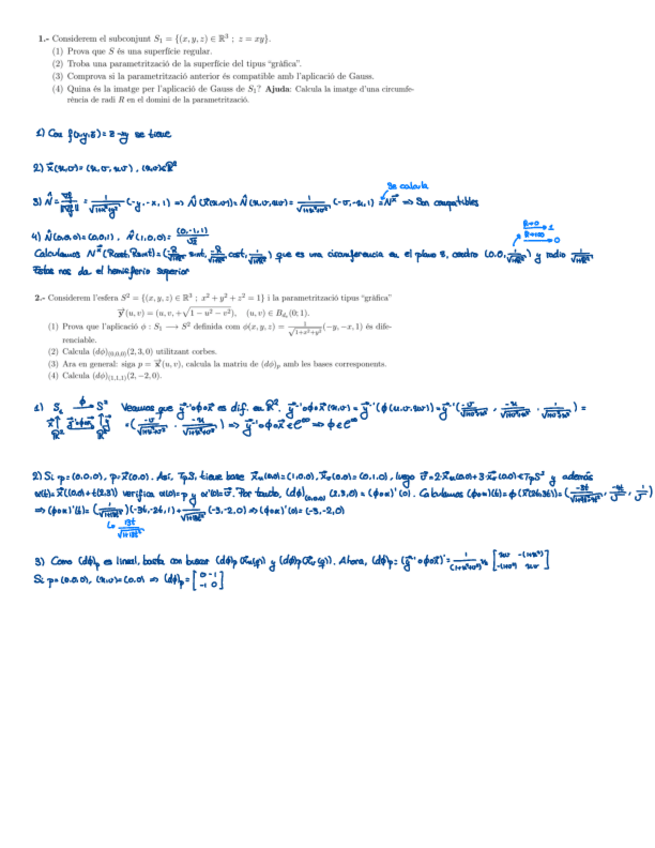 1.- Considerem el subconjunt S₁ = {(x, y, z) ∈ ℝ³ ; z = xy}.
(1) Prova que S és una superfície regular.
(2) Troba una parametrització de la superfície del tipus "gràfica".
(3) Comprova si la parametrització anterior és compatible amb l'aplicació de Gauss.
(4) Quina és la imatge per l'aplicació de Gauss de S₁? Ajuda: Calcula la imatge d'una circumfe-
rència de radi R en el domini de la parametrització.
1) Con f(x,y,z) = z - xy se tiene
2) x⃗(u,v) = (u, v, uv), (u,v)∈ℝ²
Se calcula
3) N̂ = ∇f/‖∇f‖ = 1/√(1+x²+y²) (-y, -x, 1) ⇒ N̂(x⃗(u,v)) = N̂(u,v,uv) = 1/√(1+u²+v²) (-v, -u, 1) = N^x⃗ ⇒ Son compatibles
R→0 → 1
R→+∞ → 0
4) N̂(0,0,0) = (0,0,1), N̂(1,0,0) = (0,-1,1)/√2
Calculamos N^x⃗(Rcost, Rsint) = (-R/√(1+R²) sint, -R/√(1+R²) cost, 1/√(1+R²)) que es una circunferencia en el plano centro (0,0, 1/√(1+R²)) y radio
Estas nos da el hemisferio superior
2.- Considerem l'esfera S² = {(x, y, z) ∈ ℝ³ ; x² + y² + z² = 1} i la parametrització tipus "gràfica"
y⃗(u, v) = (u, v, +√(1 − u² − v²)), (u, v) ∈ B_{d₂}(0; 1).
(1) Prova que l'aplicació ϕ : S₁ ⟶ S² definida com ϕ(x, y, z) = 1/√(1+x²+y²) (−y, −x, 1) és dife-
renciable.
(2) Calcula (dϕ)₍₀,₀,₀₎(2, 3, 0) utilitzant corbes.
(3) Ara en general: siga p = x⃗(u, v), calcula la matriu de (dϕ)ₚ amb les bases corresponents.
(4) Calcula (dϕ)₍₁,₁,₁₎(2, −2, 0).
1) S₁ →ϕ S² Veamos que y⃗⁻¹∘ϕ∘x⃗ es dif. en ℝ². y⃗⁻¹∘ϕ∘x⃗(u,v) = y⃗⁻¹(ϕ(u,v,uv)) = y⃗⁻¹(-v/√(1+u²+v²), -u/√(1+u²+v²), 1/√(1+u²+v²)) =
= (-v/√(1+u²+v²), -u/√(1+u²+v²)) ⇒ y⃗⁻¹∘ϕ∘x⃗ ∈ C^∞ ⇒ ϕ∈C^∞
2) Si p = (0,0,0), p = x⃗(0,0). Así, TpS₁ tiene base x⃗u(0,0) = (1,0,0), x⃗v(0,0) = (0,1,0), luego v⃗ = 2·x⃗u(0,0) + 3·x⃗v(0,0) ∈ y además
α(t) = x⃗((0,0)+t(2,3)) verifica α(0) = p y α'(0) = v⃗. Por tanto, (dϕ)₍₀,₀,₀₎(2,3,0) = (ϕ∘α)'(0). Calculamos (ϕ∘α)(t) = ϕ
⇒ (ϕ∘α)'(t) = (-3t, -2t, 1) + (-3,-2,0) ⇒ (ϕ∘α)'(0) = (-3,-2,0)
3) Como (dϕ)p es lineal, basta con buscar (dϕ)p (x⃗u(p)) y (dϕ)p (x⃗v(p)). Ahora, (dϕ)p = (y⃗⁻¹∘ϕ∘x⃗)' = 1/(1+u²+v²)^3/2 [uv -(1+u²) -(1+v²) uv]
Si p = (0,0,0), (u,v) = (0,0) ⇒ (dϕ)p = [0 -1 -1 0]